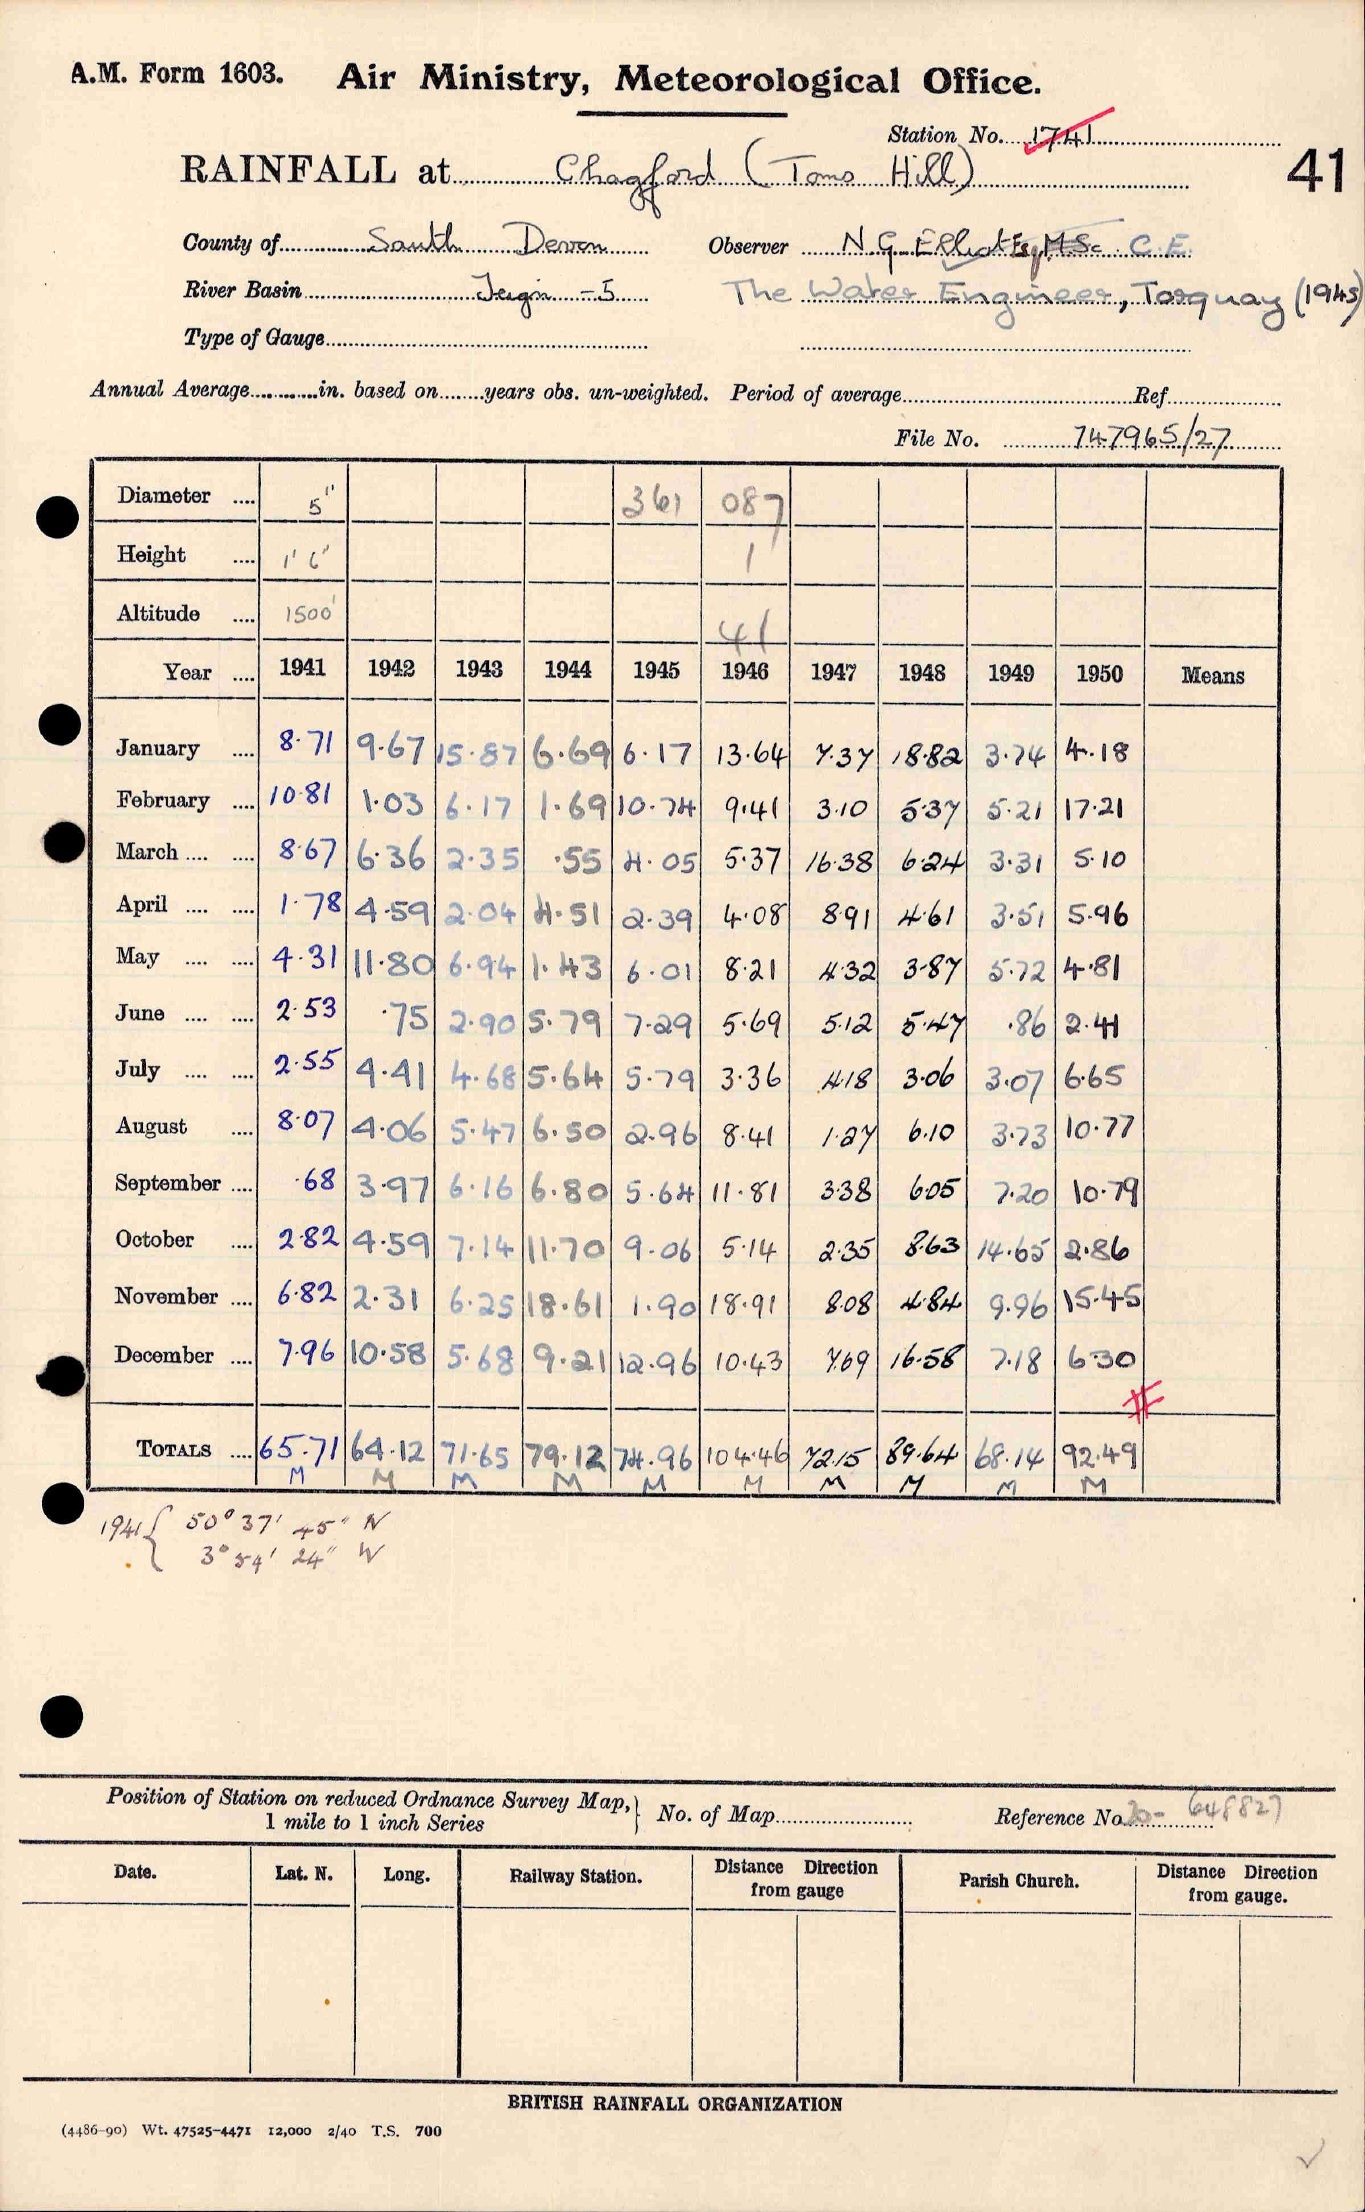 A.M. Form 1603. Air Ministry, Meteorological Office.
Station No. 1741
RAINFALL at Chagford (Toms Hill)
41
County of South Devon Observer N.G. Elliot Esq M.Sc C.E.
River Basin Teign -5 The Water Engineer, Torquay (1945)
Type of Gauge
Annual Average in. based on years obs. un-weighted. Period of average Ref
File No. 747965/27
Diameter 5" 361 087
Height 1' 6" 1
Altitude 1500' 41
Year 1941 1942 1943 1944 1945 1946 1947 1948 1949 1950 Means
January 8.71 9.67 15.87 6.69 6.17 13.64 7.37 18.82 3.74 4.18
February 10.81 1.03 6.17 1.69 10.74 9.41 3.10 5.37 5.21 17.21
March 8.67 6.36 2.35 .55 4.05 5.37 16.38 6.24 3.31 5.10
April 1.78 4.59 2.04 4.51 2.39 4.08 8.91 4.61 3.51 5.96
May 4.31 11.80 6.94 1.43 6.01 8.21 4.32 3.87 5.72 4.81
June 2.53 .75 2.90 5.79 7.29 5.69 5.12 5.47 .86 2.41
July 2.55 4.41 4.68 5.64 5.79 3.36 4.18 3.06 3.07 6.65
August 8.07 4.06 5.47 6.50 2.96 8.41 1.27 6.10 3.73 10.77
September .68 3.97 6.16 6.80 5.64 11.81 3.38 6.05 7.20 10.79
October 2.82 4.59 7.14 11.70 9.06 5.14 2.35 8.63 14.65 2.86
November 6.82 2.31 6.25 18.61 1.90 18.91 8.08 4.84 9.96 15.45
December 7.96 10.58 5.68 9.21 12.96 10.43 7.69 16.58 7.18 6.30
#
TOTALS 65.71 64.12 71.65 79.12 74.96 104.46 72.15 89.64 68.14 92.49
M M M M M M M M M M
1941 { 50° 37' 45" N
3° 54' 24" W
Position of Station on reduced Ordnance Survey Map,} No. of Map Reference No. 20- 648827
1 mile to 1 inch Series
Date. Lat. N. Long. Railway Station. Distance Direction from gauge Parish Church. Distance Direction from gauge.
BRITISH RAINFALL ORGANIZATION
(4486-90) Wt. 47525-4471 12,000 2/40 T.S. 700